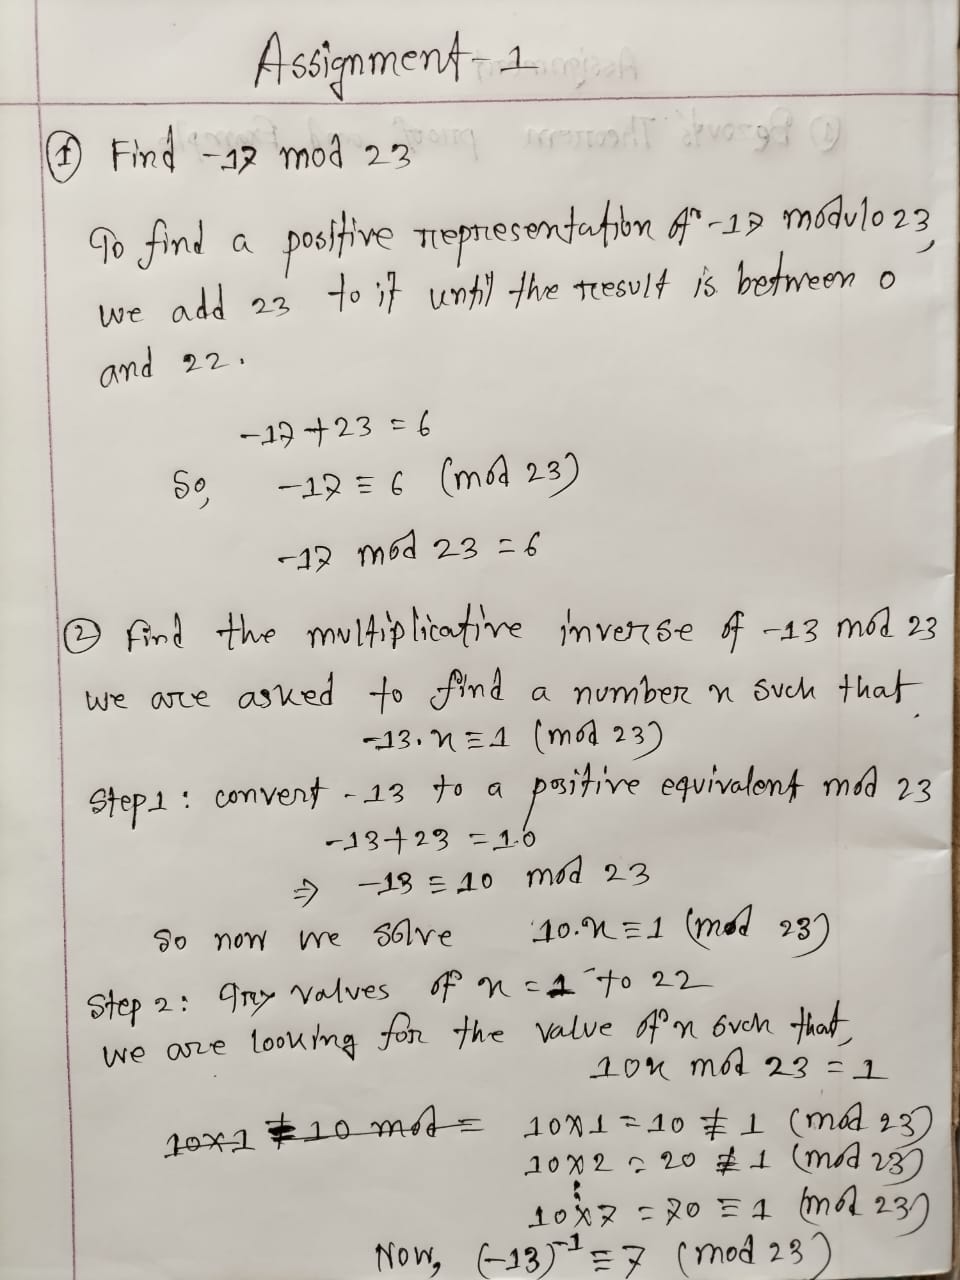 Assignment-1
① Find -17 mod 23
To find a positive representation of -17 modulo 23,
we add 23 to it until the result is between 0
and 22.
-17 + 23 = 6
So, -17 ≡ 6 (mod 23)
-17 mod 23 = 6
② Find the multiplicative inverse of -13 mod 23
we are asked to find a number x such that
-13.x ≡ 1 (mod 23)
Step 1: convert -13 to a positive equivalent mod 23
-13 + 23 = 10
⇒ -13 ≡ 10 mod 23
So now we solve 10.x ≡ 1 (mod 23)
Step 2: Try values of x = 1 to 22
we are looking for the value of x such that,
10x mod 23 = 1
10×1 ≠ 10 mod = 10×1 = 10 ≢ 1 (mod 23)
10×2 = 20 ≢ 1 (mod 23)
⋮
10×7 = 70 ≡ 1 (mod 23)
Now, (-13)⁻¹ ≡ 7 (mod 23)